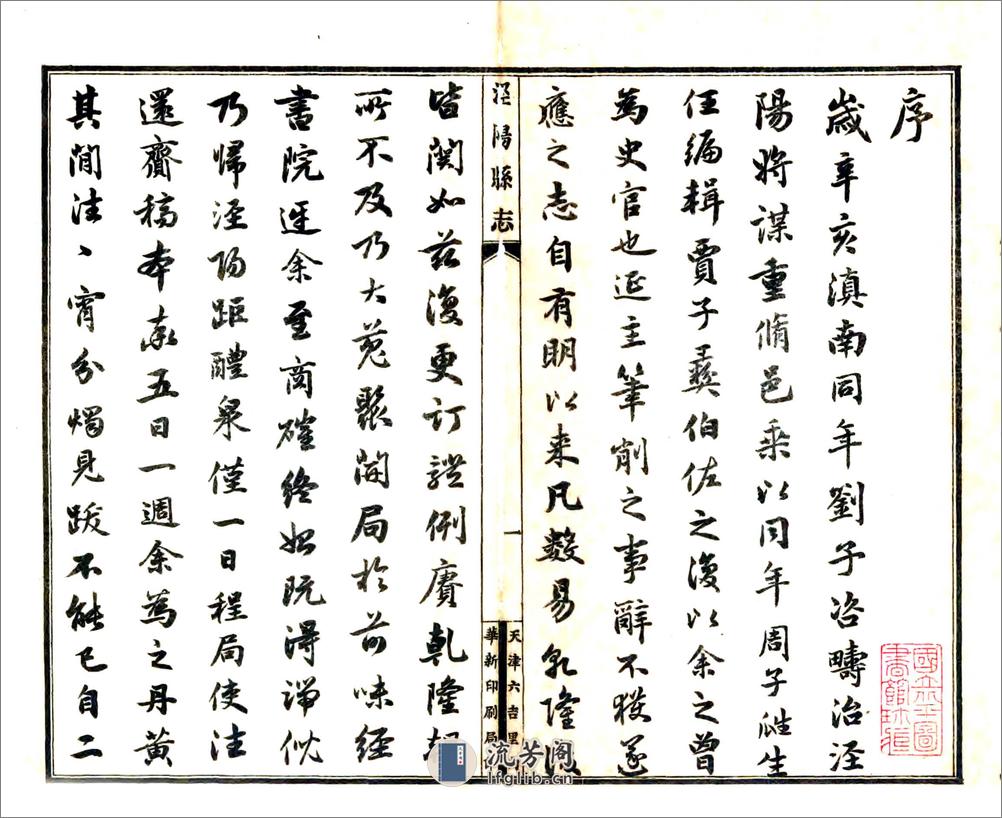 序
歲辛亥滇南同年劉子咨疇治涇
陽將謀重脩邑乘以同年周子生
任編輯賈子彝伯佐之復以余之曾
為史官也延主筆削之事辭不獲遂
應之志自有明以来凡數易乹隆後
涇陽縣志
一
天津六吉里
華新印刷局
皆闕如茲復更訂體例賡乹隆
所不及乃大蒐聚開局於前味經
書院迓余至商確終始既得端倪
乃歸涇陽距醴泉僅一日程局使往
還齎稿本率五日一週余為之丹黃
其間往〻宵分燭見跋不能已自二
流芳阁
lfglib.cn